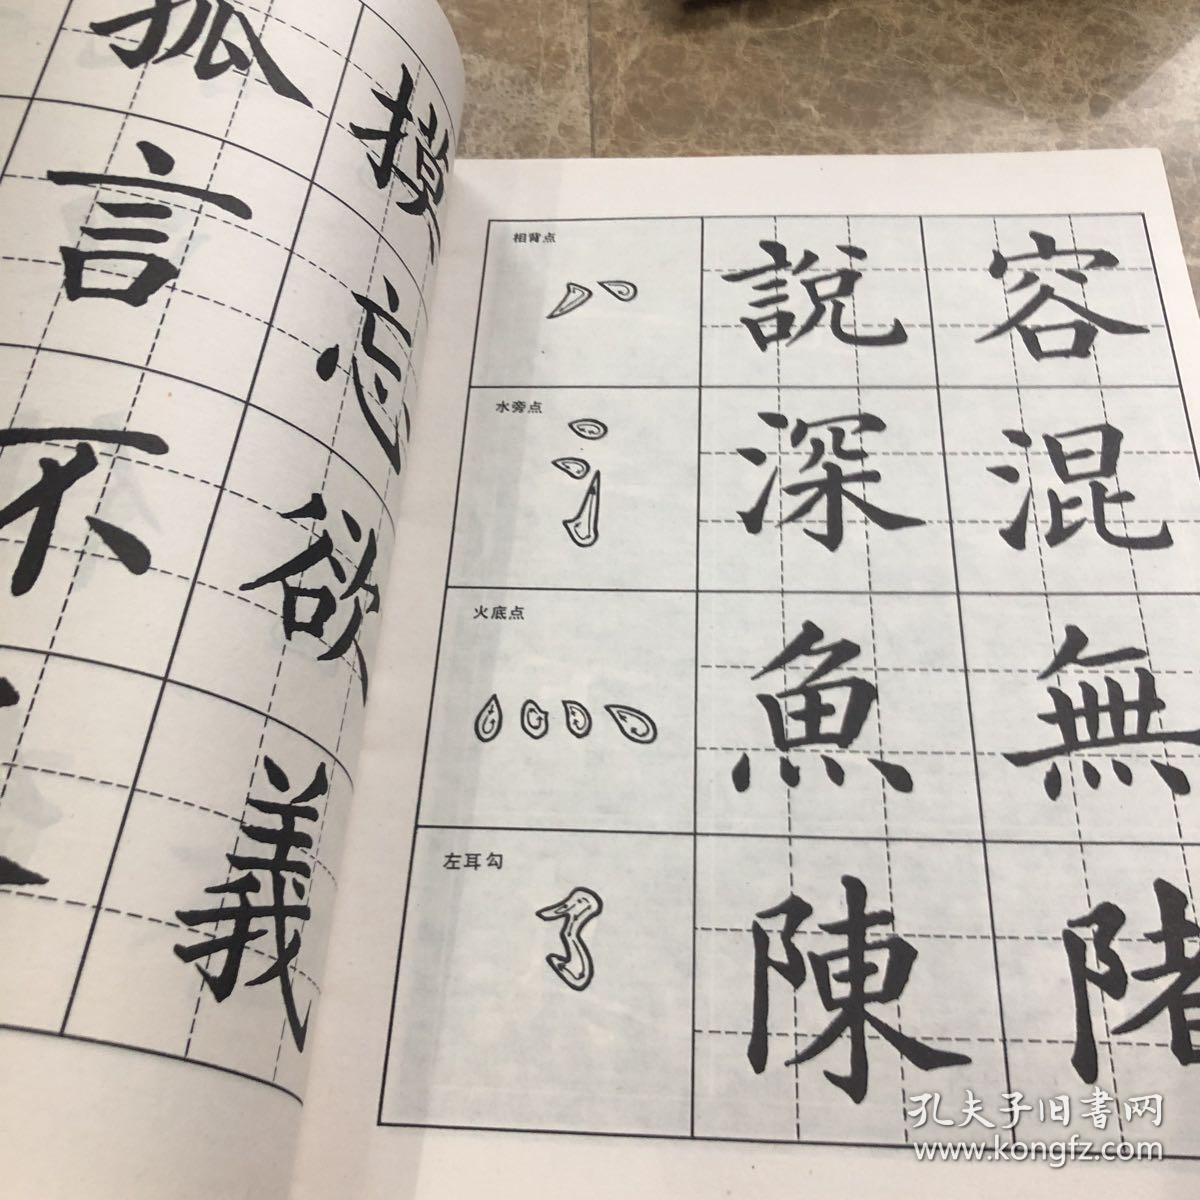 孤
言
不
摸
忘
欲
義
相背点
說
容
水旁点
深
混
火底点
魚
無
左耳勾
陳
孔夫子旧書网
www.kongfz.com